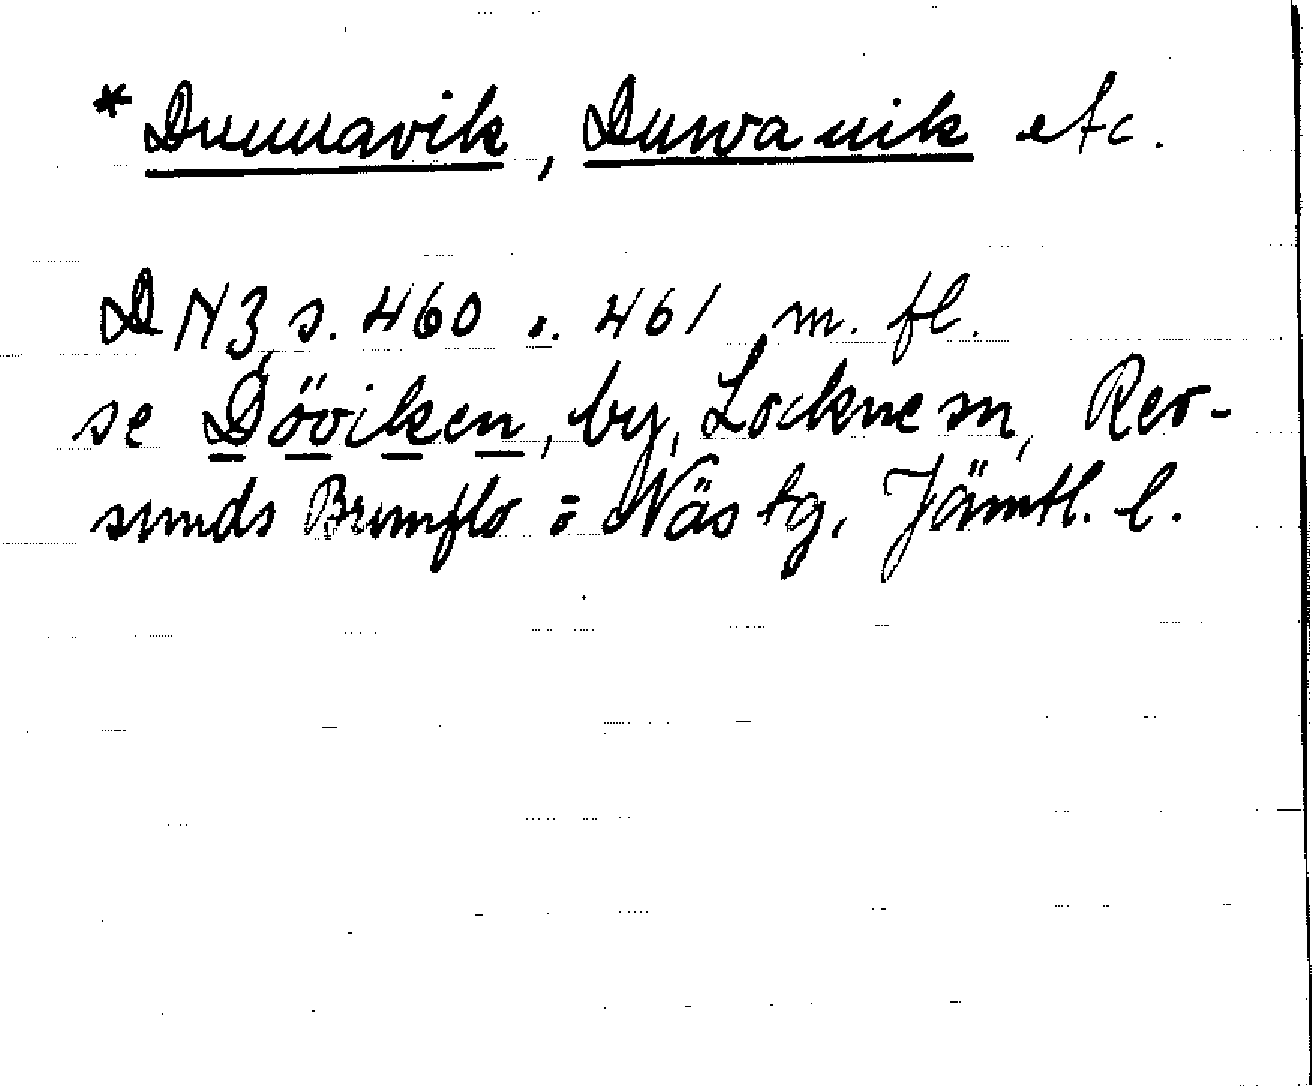 *Duuuavik, Duwa uik etc.
DN 3, s. 460 o. 461 m. fl.
se Döviken, by, Lockne sn, Rev-
sunds Brunflo o Näs tg, Jämtl. l.